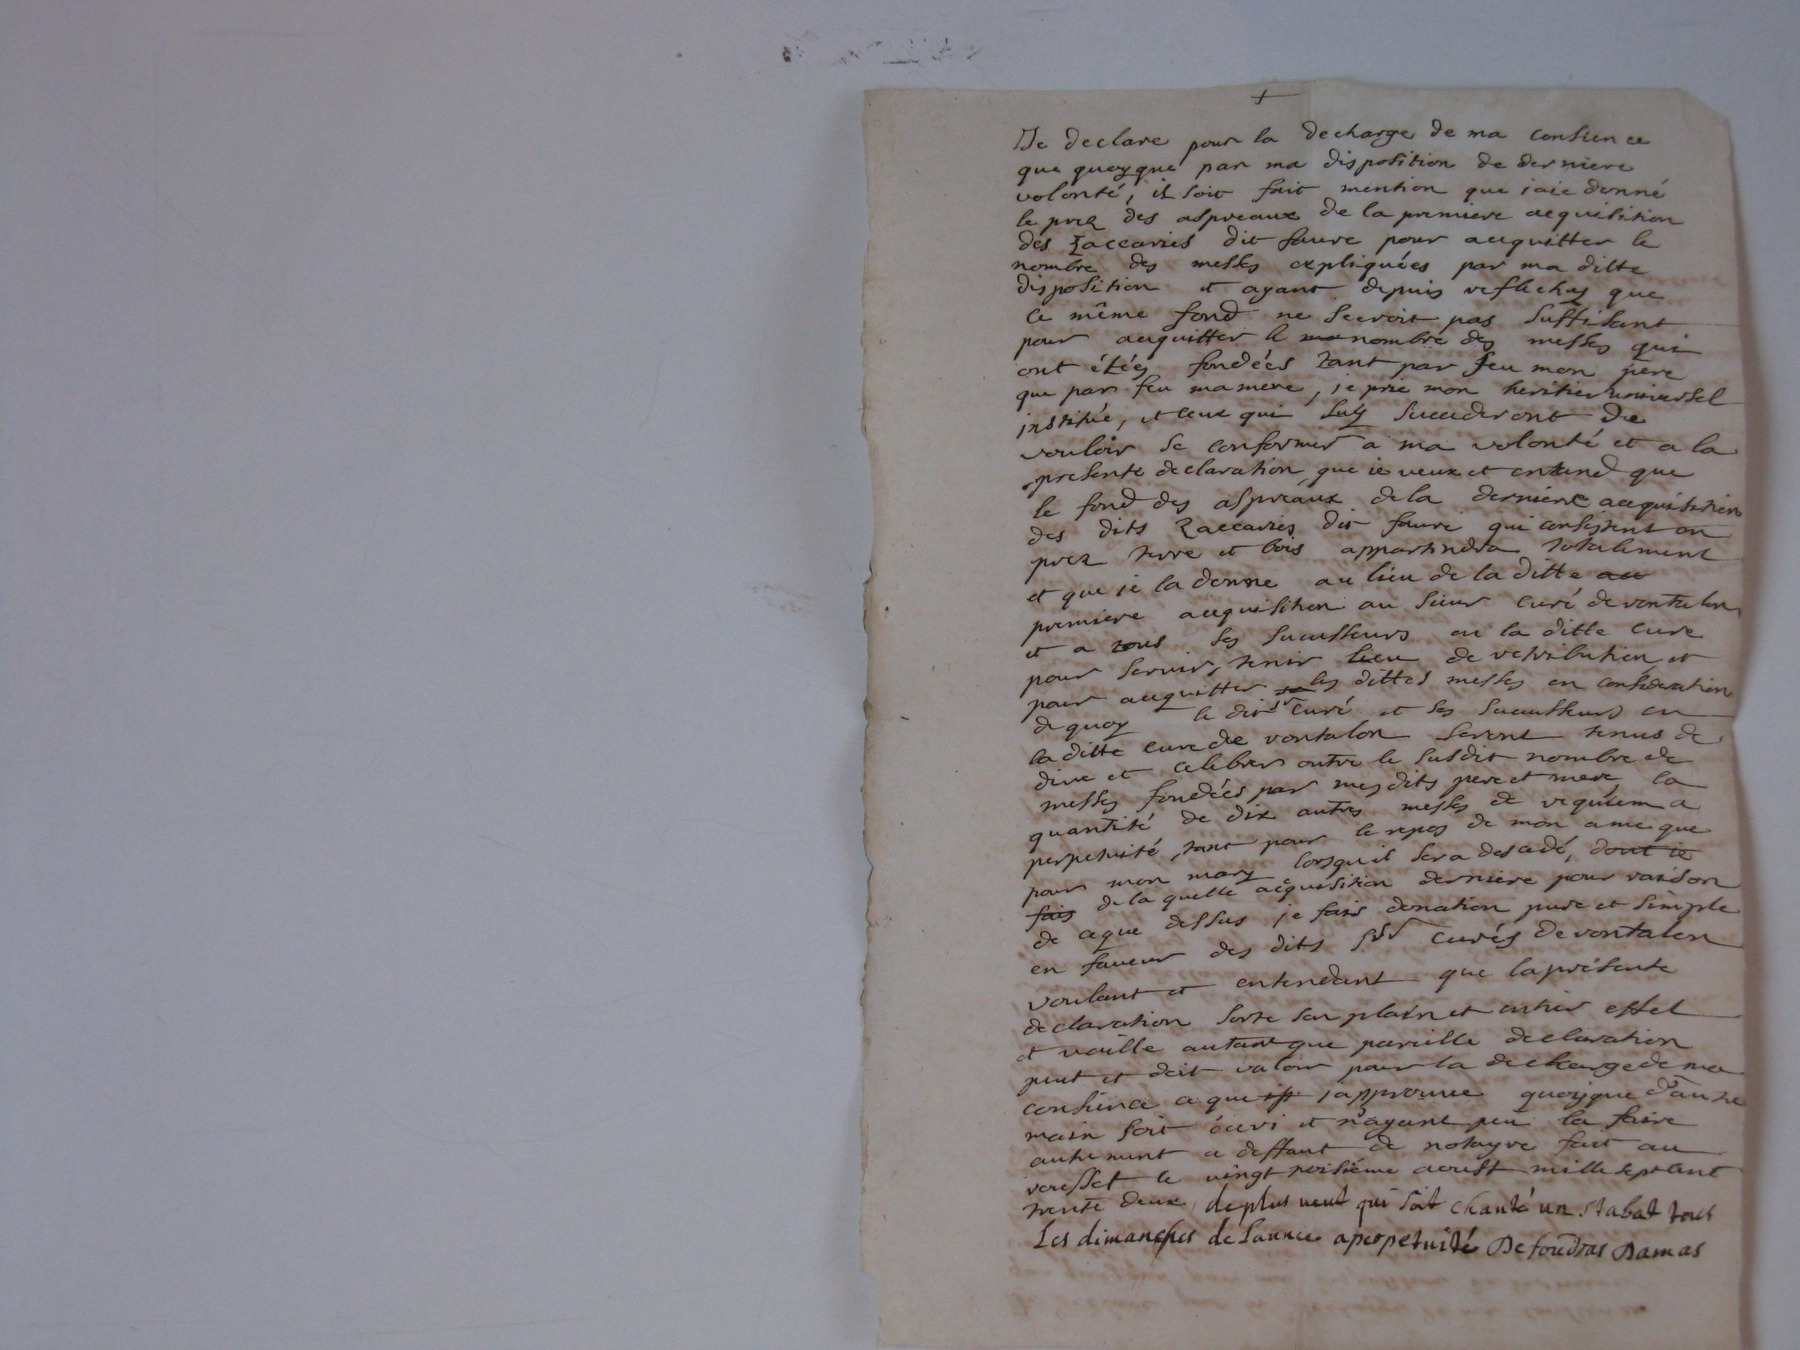 +
Je declare pour la decharge de ma consience
que quoyque par ma disposition de derniere
volonté, il soit fait mention que iaie donné
le prez des aspreaux de la premiere acquisition
des Zaccaries dit faure pour acquitter le
nombre des messes expliquées par ma ditte
disposition et ayant depuis reflechy que
ce même fond ne seroit pas suffisant
pour acquitter le nombre des messes qui
ont étés fondées tant par feu mon pere
que par feu ma mere, je prie mon heritier universel
institué, et ceux qui luy succederont de
vouloir se conformer a ma volonté et a la
presente declaration, que ie veux et entend que
le fond des aspreaux de la derniere acquisition
des dits Zaccaries dit faure qui consistent en
prez terre et bois appartindra totalement
et que ie la donne au lieu de la ditte
premiere acquisition au sieur curé de vontalon
et a tous ses successeurs en la ditte cure
pour servir, tenir lieu de retribution et
pour acquitter les dittes messes en consideration
de quoy le dit sr curé et ses successeurs en
la ditte cure de vontalon seront tenus de
dire et celebrer outre le susdit nombre de
messes fondées par mes dits pere et mere, la
quantité de dix autres messes de requiem a
perpetuité, tant pour le repos de mon ame que
pour mon mary lorsqu'il sera decedé, dont ie
fais de la quelle acquisition derniere pour raison
de ce que dessus je fais donation pure et simple
en faveur des dits srs curés de vontalon
voulant et entendant que la présente
declaration sorte son plain et entier effet
et vaille autant que pareille declaration
peut et doit valoir pour la decharge de ma
consience ce que japprouve quoyque d'autre
main soit écri et n'ayant peu la faire
autrement a deffaut de notayre fait au
verosset le vingt troisiéme aoust mille sept cent
trente deux, de plus veut qui soit chanté un stabat tous
Les dimanches de Lannee a perpetuité De foudras Damas